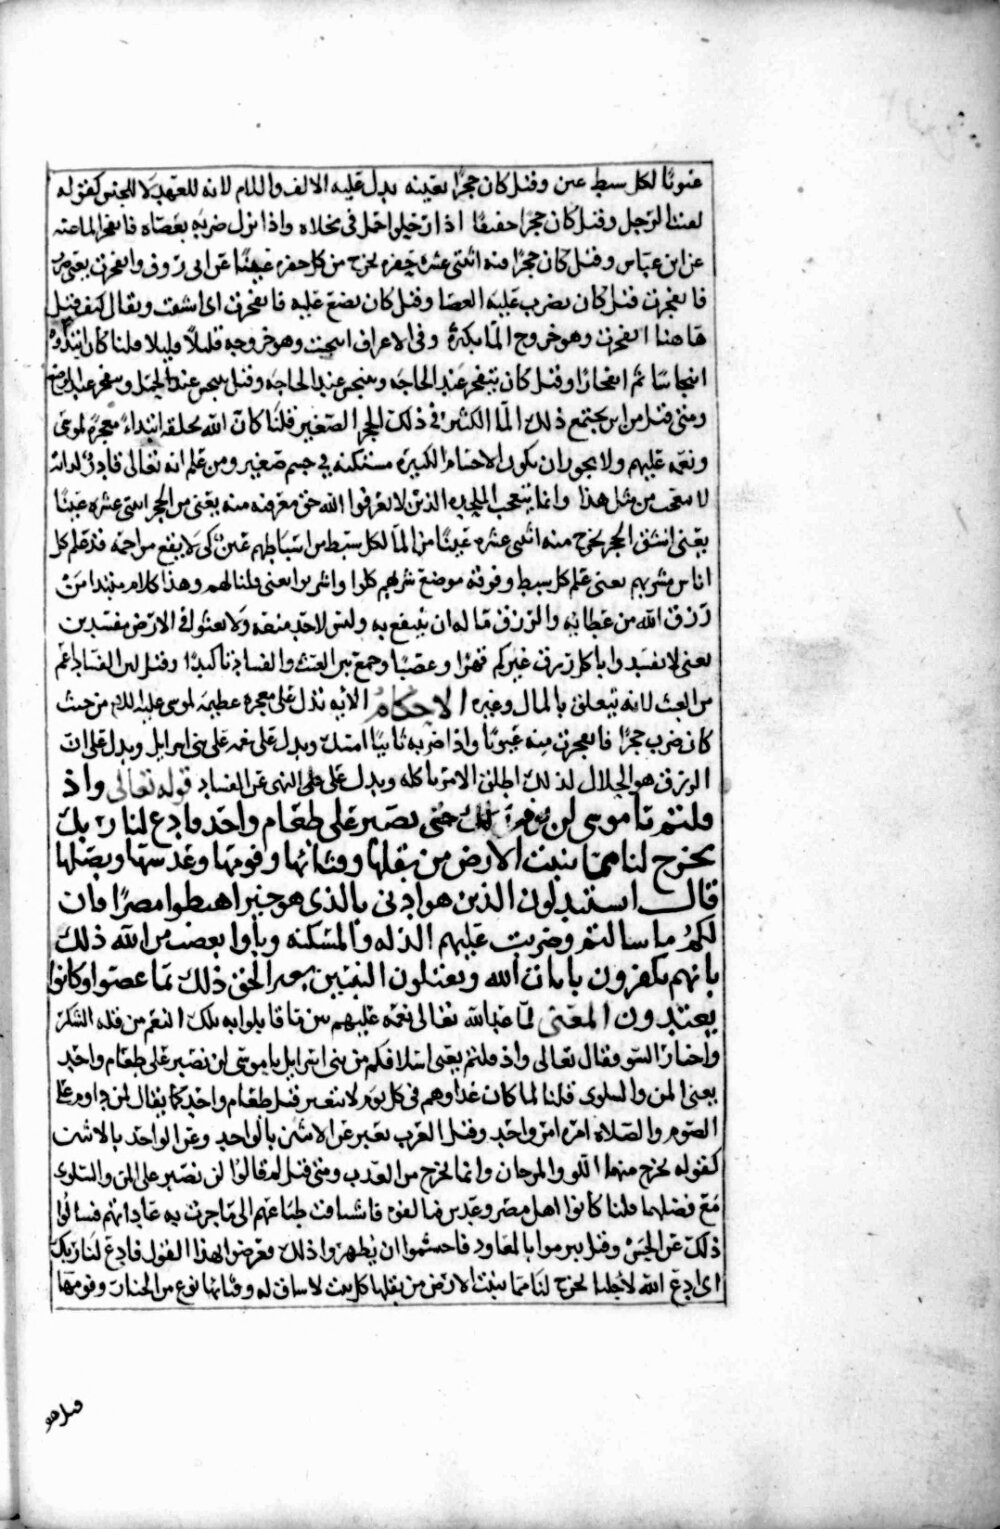 عيونا لكل سبط عين وقيل كان حجرا بعينه يدل عليه الالف واللام لانه للعهد لا للجنس كقوله
لعنت الرجل وقيل كان حجرا خفيفا اذا ارتحلوا حمل في مخلاه واذا نزل ضربه بعصاه فانفجر الما عنه
عن ابن عباس وقيل كان حجرا فيه اثنتي عشره حفره يخرج من كل حفره عينا عن ابي روق وانفجرت يعني
فانفجرت قيل كان يضرب عليه العصا وقيل كان يضع عليه فانفجرت اي انشقت ويقال كيف قيل
هاهنا انفجرت وهو خروج الما بكثرة وفي الاعراف انبجست وهو خروجه قليلا قليلا قلنا كان ابتداؤه
انبجاسا ثم انفجارا وقيل كان يتفجر عند الحاجه وينبجس عند الحاجه وقيل ينبجس عند الحمل ويتفجر عند الوضع
ومتى قيل من اين يجتمع ذلك الما الكثير في ذلك الحجر الصغير قلنا كان الله يخلقه ابتداء معجزة لموسى
ونعمه عليهم ولا يجوز ان يكون الاجسام الكثيرة مستكنه في جسم صغير ومن علم انه تعالى قادر لذاته
لا يتعجب من مثل هذا وانما يتعجب الملحده الذين لا يعرفوا الله حق معرفته منه يعني من الحجر اثنتي عشره عينا
يعني انشق الحجر يخرج منه اثنتي عشره عينا من الما لكل سبط من اسباطهم عين كي لا يقع مزاحمه قد علم كل
اناس مشربهم يعني علم كل سبط وفرقة موضع شربهم كلوا واشربوا يعني قلنا لهم وهذا كلام مبتدا من
رزق الله من عطائه والرزق ما له ان ينتفع به وليس لاحد منعه ولا تعثوا في الارض مفسدين
يعني لا تفسدوا باكل رزق غيركم قهرا وغصبا وجمع بين العيث والفساد تاكيدا وقيل لان الفساد اعم
من العيث لانه يتعلق بالمال وغيره الاحكام الايه تدل على معجزه عظيمه لموسى عليه السلام من حيث
كان ضرب حجرا فانفجرت منه عيونا واذا ضربه ثانيا امسك ويدل على نعمه على بني اسرائيل ويدل على ان
الرزق هو الحلال لذلك اطلق الامر باكله ويدل على النهي عن الفساد قوله تعالى واذ
قلتم يا موسى لن نؤمن لك حتى نصبر على طعام واحد فادع لنا ربك
يخرج لنا مما تنبت الارض من بقلها وقثائها وفومها وعدسها وبصلها
قال اتستبدلون الذين هو ادنى بالذي هو خير اهبطوا مصرا فان
لكم ما سالتم وضربت عليهم الذله والمسكنه وباوا بغضب من الله ذلك
بانهم يكفرون بايات الله ويقتلون النبيين بغير الحق ذلك بما عصوا وكانوا
يعتدون المعنى لما عد الله تعالى نعمه عليهم بين ما قابلوا به تلك النعم من قله الشكر
واختار السو فقال تعالى واذ قلتم يعني اسلافكم من بني اسرائيل يا موسى لن نصبر على طعام واحد
يعني المن والسلوى قلنا لما كان غداوهم في كل يوم لا يتغير قيل طعام واحد كما يقال لمن داوم على
الصوم والصلاه امره امر واحد وقيل العرب تعبر عن الاثنين بالواحد وعن الواحد بالاثنين
كقوله يخرج منهما اللولو والمرجان وانما يخرج من العذب ومتى قيل لم قالوا لن نصبر على المن والسلوى
مع فضلهما قلنا كانوا اهل مصر فاشتاقت طباعهم الى ما جرت به عاداتهم فسالوا
ذلك عن الحسن وقيل تبرموا بالمعاود فاحتشموا ان يظهروا ذلك فعرضوا بهذا القول فادع لنا ربك
اي ادع الله لاجلنا يخرج لنا مما تنبت الارض من بقلها كل نبت لا ساق له وقثائها نوع من الخيار وفومها
قيل هو